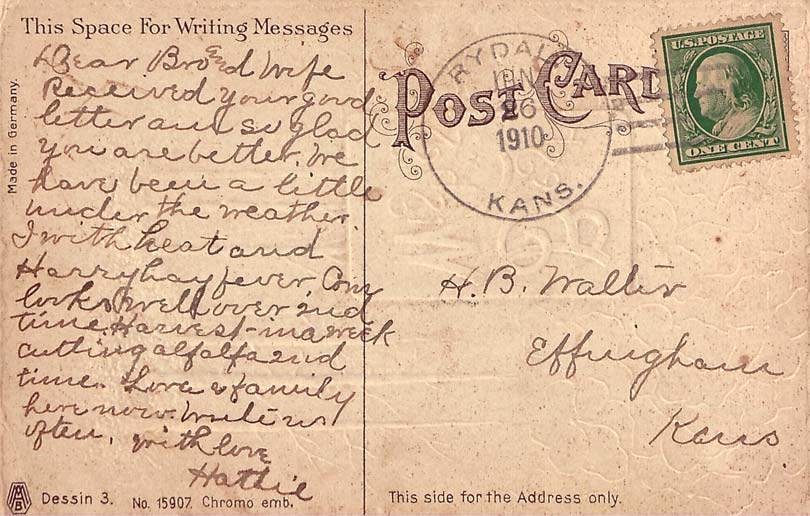 This Space For Writing Messages
Dear Bro and Wife
Received your good
letter am so glad
you are better. We
have been a little
under the weather
I with heat and
Harry hay fever. Corn
looks well over 2nd
time. Harvest in a week
cutting alfalfa 2nd
time. Love & family
here now. Write us
often, with love
Hattie
Made in Germany.
MAB
Dessin 3. No. 15907. Chromo emb.
POST CARD
RYDAL
JUN
26
1910
KANS.
U.S. POSTAGE
ONE CENT
H. B. Walter
Effingham
Kans
This side for the Address only.